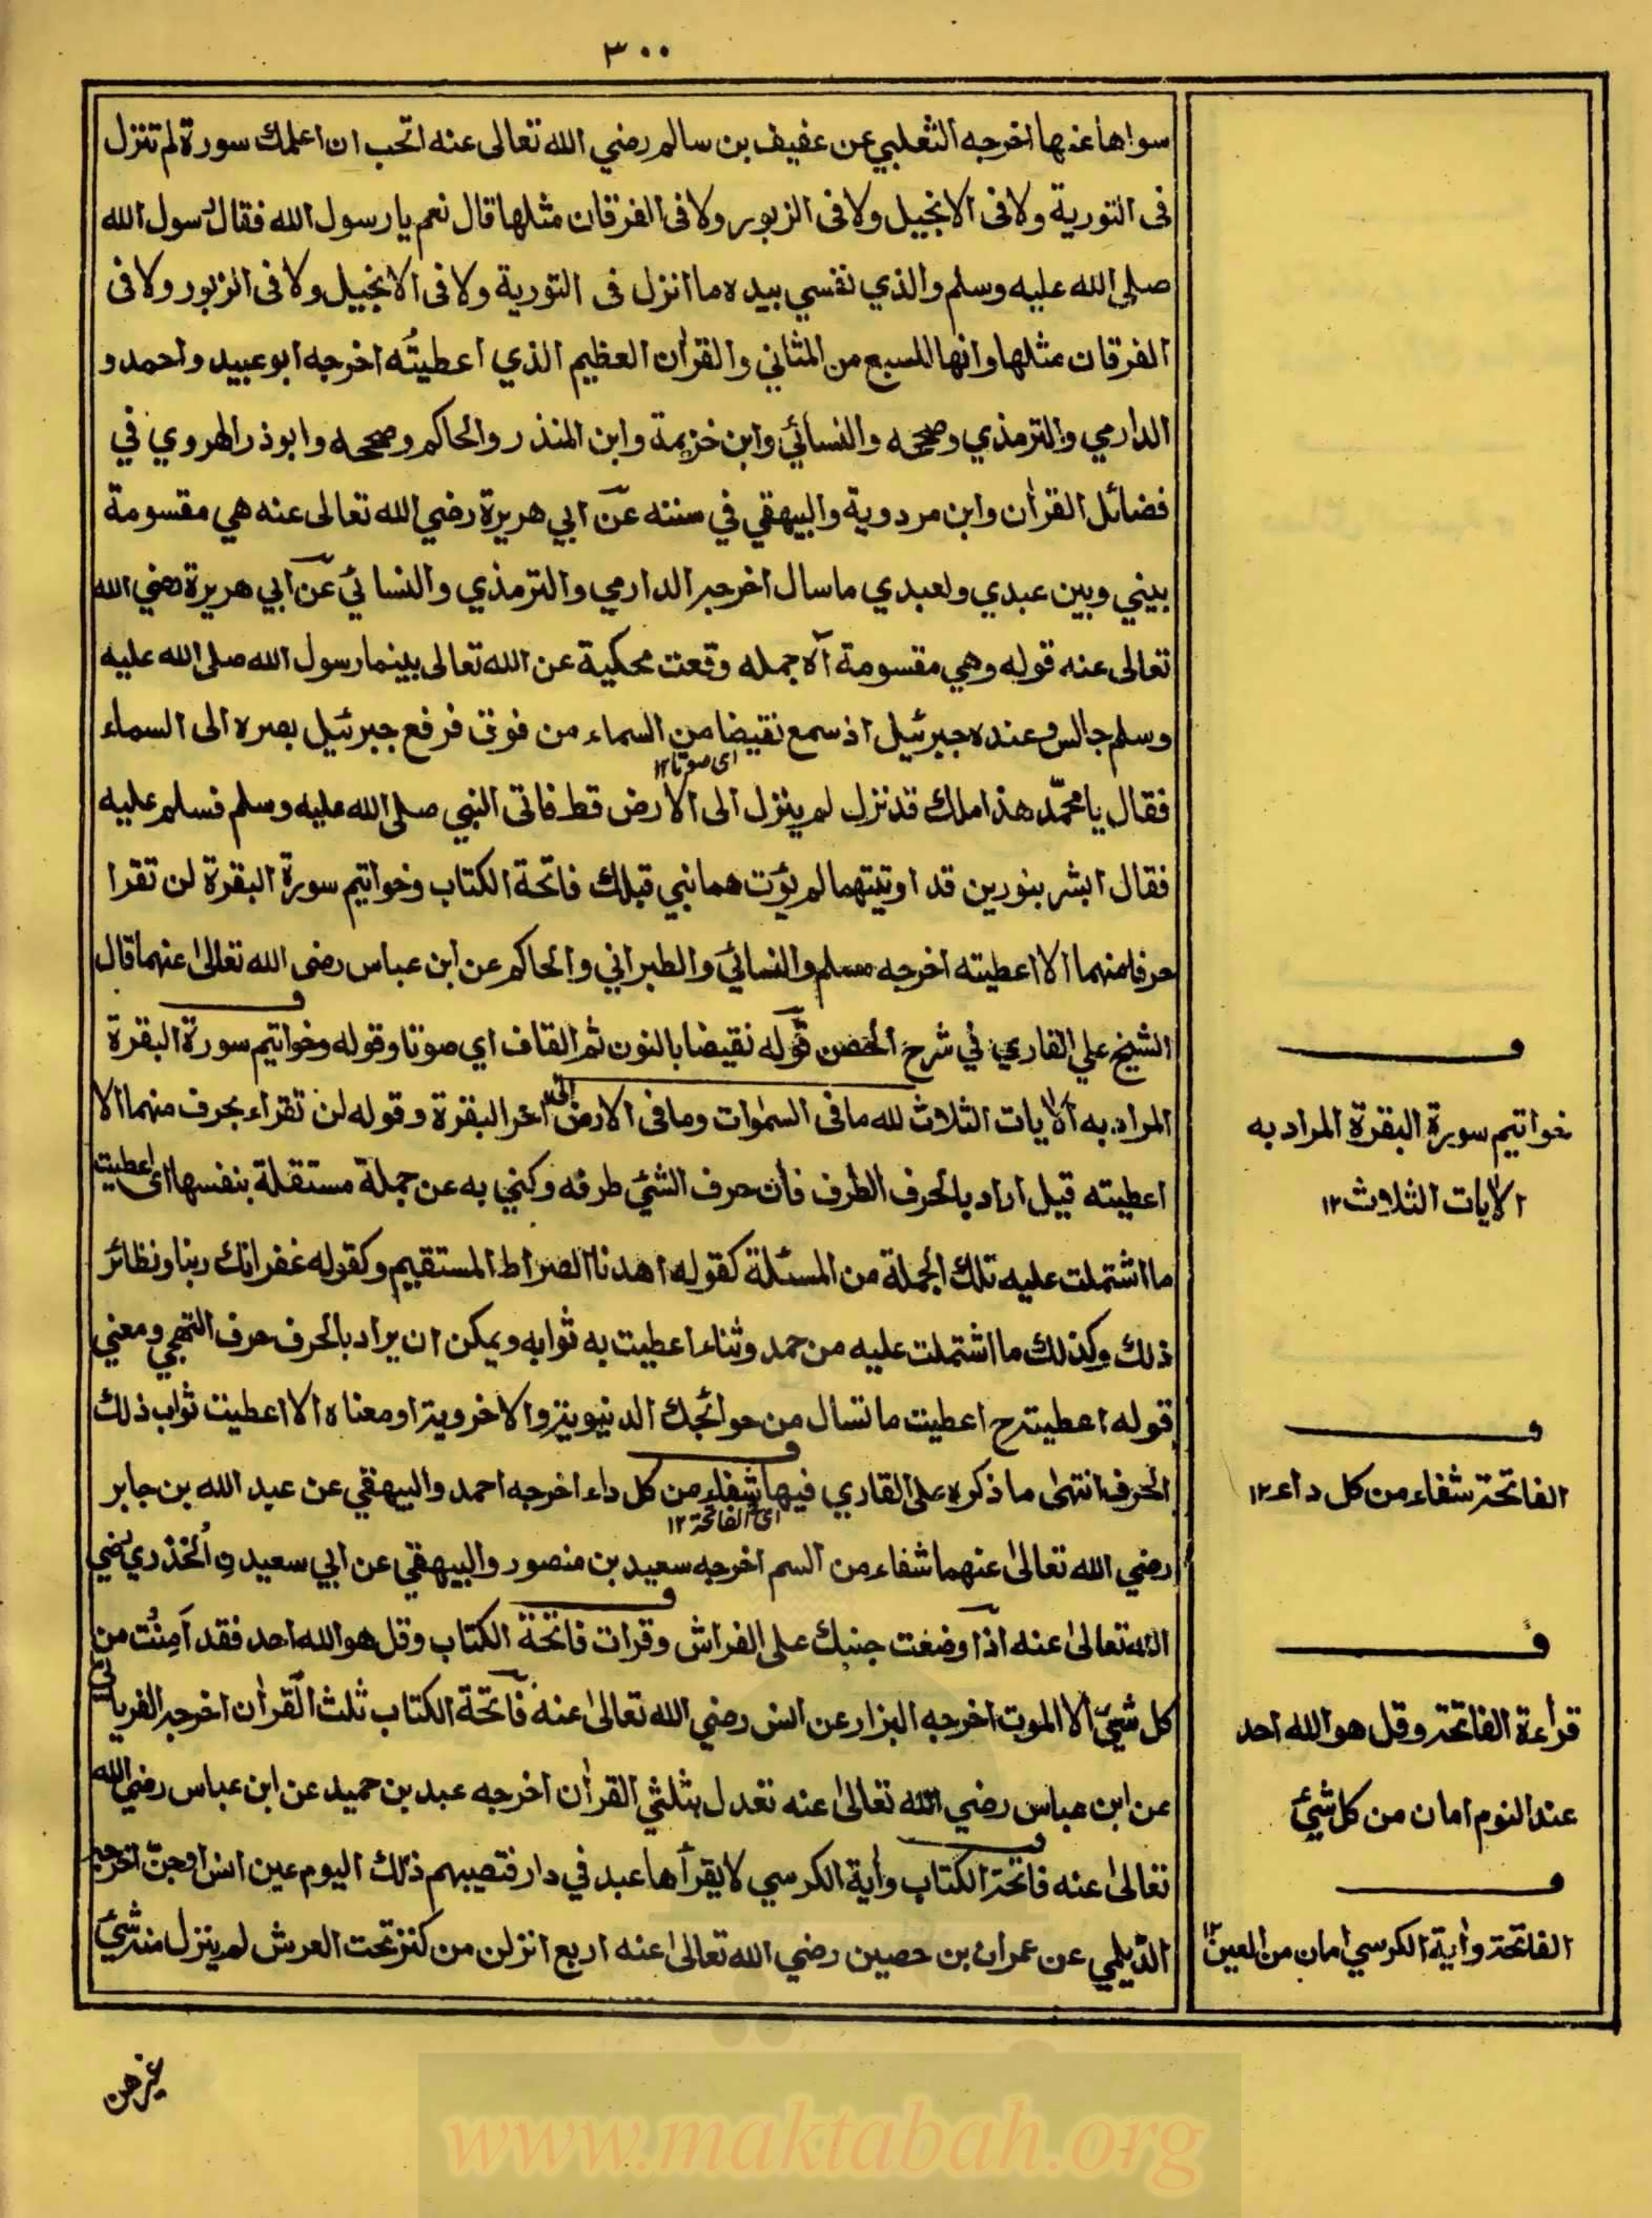 ٣٠٠
سواها عنها اخرجه الثعلبي عن عفيف بن سالم رضي الله تعالى عنه اتحب ان اعلمك سورة لم تنزل
فى التورية ولا فى الانجيل ولا فى الزبور ولا فى الفرقان مثلها قال نعم يا رسول الله فقال رسول الله
صلى الله عليه وسلم والذي نفسي بيده ما انزل فى التورية ولا فى الانجيل ولا فى الزبور ولا فى
الفرقان مثلها وانها للسبع من المثاني والقرآن العظيم الذي اعطيتُه اخرجه ابو عبيد واحمد و
الدارمي والترمذي وصححه والنسائي وابن خزيمة وابن المنذر والحاكم وصححه وابوذر الهروي في
فضائل القرآن وابن مردوية والبيهقي في سننه عن ابي هريرة رضي الله تعالى عنه هي مقسومة
بيني وبين عبدي ولعبدي ما سال اخرجه الدارمي والترمذي والنسائي عن ابي هريرة رضي الله
تعالى عنه قوله وهي مقسومة آلا جمله وقعت محكية عن الله تعالى بينما رسول الله صلى الله عليه
وسلم جالس وعنده جبرئيل اذ سمع نقيضا من السماء من فوق فرفع جبرئيل بصره الى السماء
اى صوتا ١٢
فقال يا محمّد هذا ملك قد نزل لم ينزل الى الارض قط فاتى النبي صلى الله عليه وسلم فسلم عليه
فقال ابشر بنورين قد اوتيتهما لم يؤت هما نبي قبلك فاتحة الكتاب وخواتيم سورة البقرة لن تقرا
حرفا منهما الا اعطيته اخرجه مسلم والنسائي والطبراني والحاكم عن ابن عباس رضى الله تعالى عنهما قال
الشيخ علي القاري في شرح الحصن قوله نقيضا بالنون ثم القاف اي صوتا وقوله وخواتيم سورة البقرة
المراد به الآيات الثلاث لله ما فى السموات وما فى الارض الى اخر البقرة وقوله لن تقراء بحرف منهما الا
اعطيته قيل اراد بالحرف الطرف فان حرف الشئ طرفه وكني به عن جملة مستقلة بنفسها اى اعطيت
ما اشتملت عليه تلك الجملة من المسئلة كقوله اهدنا الصراط المستقيم وكقوله غفرانك ربنا ونظائر
ذلك وكذلك ما اشتملت عليه من حمد وثناء اعطيت به ثوابه ويمكن ان يراد بالحرف حرف التهجي ومعني
قوله اعطيته ح اعطيت ما تسال من حوائجك الدنيوية والاخروية او معناه الا اعطيت ثواب ذلك
الحرف انتهى ما ذكره على القاري فيها شفاء من كل داء اخرجه احمد والبيهقي عن عبد الله بن جابر
اى الفاتحة ١٢
رضي الله تعالى عنهما شفاء من السم اخرجه سعيد بن منصور والبيهقي عن ابي سعيد ن الخذري رضي
الله تعالى عنه اذا وضعت جنبك على الفراش وقرات فاتحة الكتاب وقل هو الله احد فقد اَمِنْتَ من
كل شيئ الا الموت اخرجه البزار عن انس رضي الله تعالى عنه فاتحة الكتاب ثلث القرآن اخرجه الفريابي
عن ابن عباس رضي الله تعالى عنه تعدل بثلثي القرآن اخرجه عبد بن حميد عن ابن عباس رضي الله
تعالى عنه فاتحة الكتاب وآية الكرسي لا يقرأها عبد في دار فتصيبهم ذلك اليوم عين انس او جن اخرجه
الديلمي عن عمران بن حصين رضي الله تعالى عنه اربع انزلن من كنز تحت العرش لم ينزل منه شيئ
ف
خواتيم سورة البقرة المراد به
الآيات الثلاث ١٢
ف
الفاتحة شفاء من كل داء ١٢
ف
قرأءة الفاتحة وقل هو الله احد
عند النوم امان من كل شيئ
ف
الفاتحة وآية الكرسي امان من العين ١٢
غيرهن
www.maktabah.org